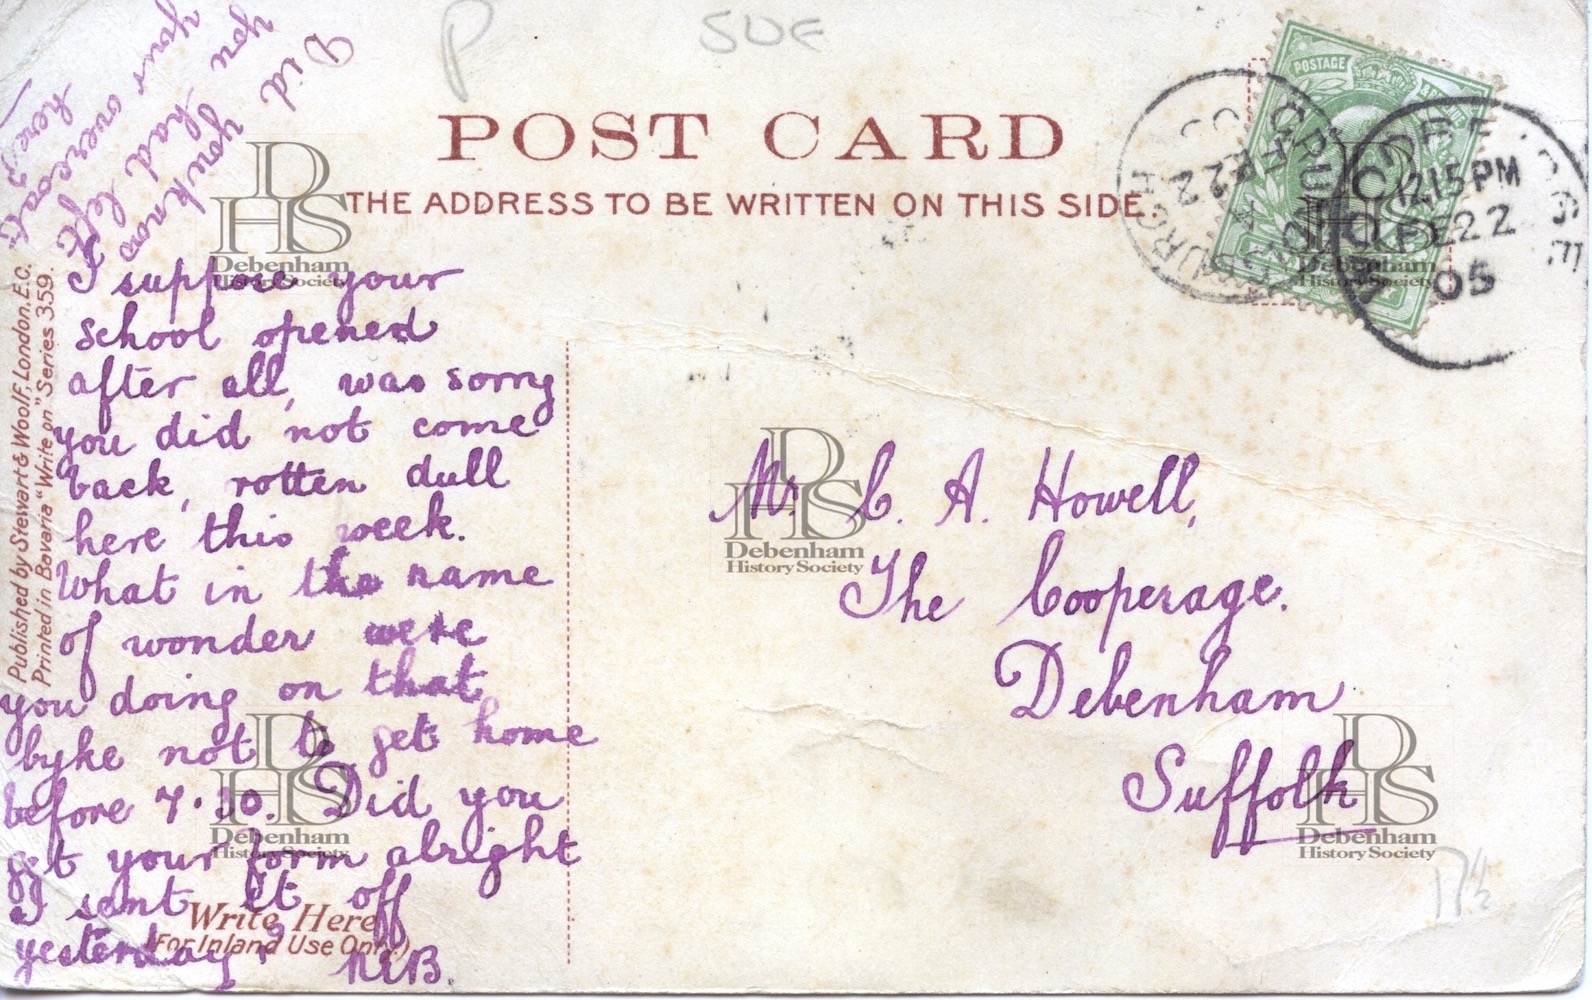 P
SUF
POST CARD
THE ADDRESS TO BE WRITTEN ON THIS SIDE.
POSTAGE
12 15 PM
FE 22
05
FE 22
Did
you know
you had left
your overcoat
here?
I suppose your
school opened
after all, was sorry
you did not come
back, rotten dull
here this week.
What in the name
of wonder were
you doing on that
byke not to get home
before 7.30. Did you
get your form alright
I sent it off
yesterday?
Write Here
(For Inland Use Only.)
Published by Stewart & Woolf, London, E.C.
Printed in Bavaria "Write on" Series 359.
Mr. C. A. Howell,
The Cooperage.
Debenham
Suffolk
DHS
Debenham
History Society
DHS
Debenham
History Society
DHS
Debenham
History Society
DHS
Debenham
History Society
DHS
Debenham
History Society